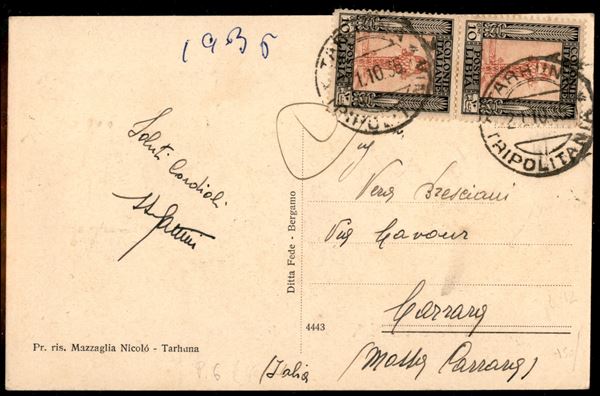 1935
10 COLONIE ITALIANE LIBIA 10
TARHUNA
1.10.36
TRIPOLITANIA
TARHUNA
TRIPOLITANIA
Saluti Cordiali
Vera Bresciani
Via Cavour
Carrara
(Massa Carrara)
(Italia
Ditta Fede - Bergamo
4443
Pr. ris. Mazzaglia Nicoló - Tarhuna
P. 6